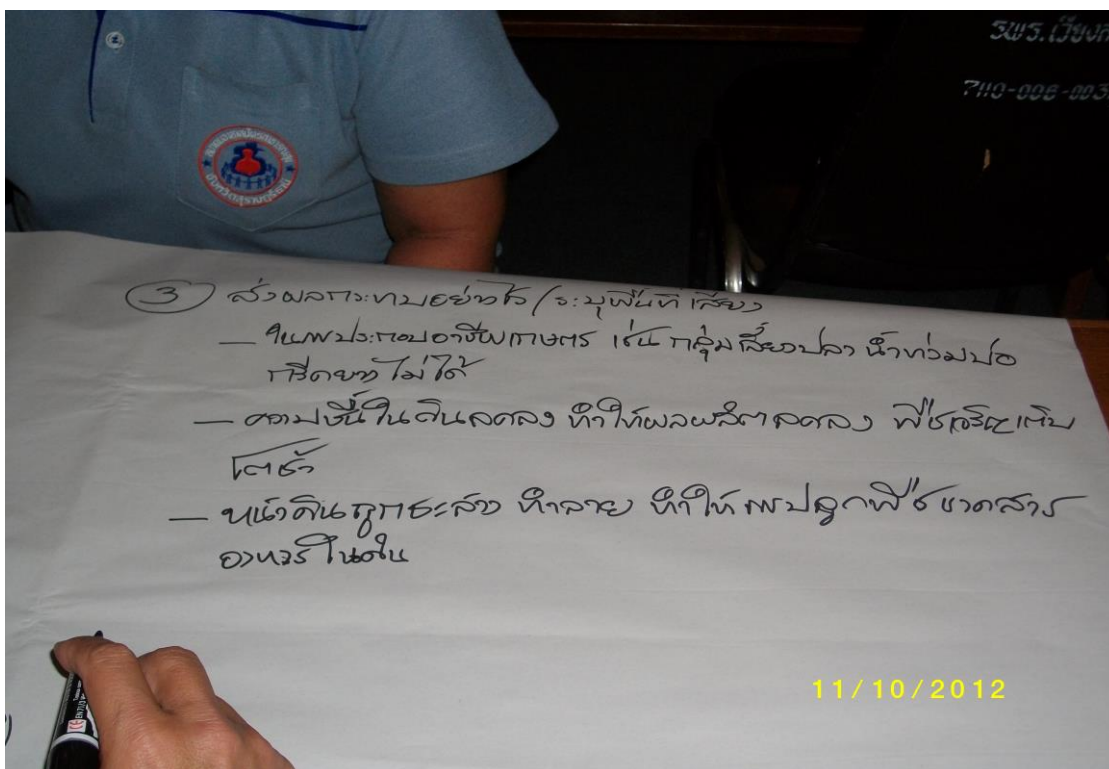 รพร.เวียงส
7110-006-003
จังหวัดสุราษฎร์ธานี
③ ส่งผลกระทบอย่างไร (ระบุพื้นที่เสี่ยง)
— ในการประกอบอาชีพเกษตร เช่น กลุ่มเลี้ยงปลา น้ำท่วมบ่อ
กรีดยางไม่ได้
— ความชื้นในดินลดลง ทำให้ผลผลิตลดลง พืชเจริญเติบ
โตช้า
— หน้าดินถูกชะล้าง ทำลาย ทำให้การปลูกพืชขาดสาร
อาหารในดิน
11/10/2012